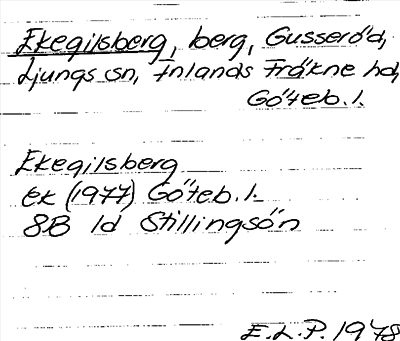 Ekegilsberg, berg, Gusseröd,
Ljungs sn, Inlands Fräkne hd,
Göteb. l.
Ekegilsberg
ek (1977) Göteb. l.
8B 1d Stillingsön
E.L.P. 1978